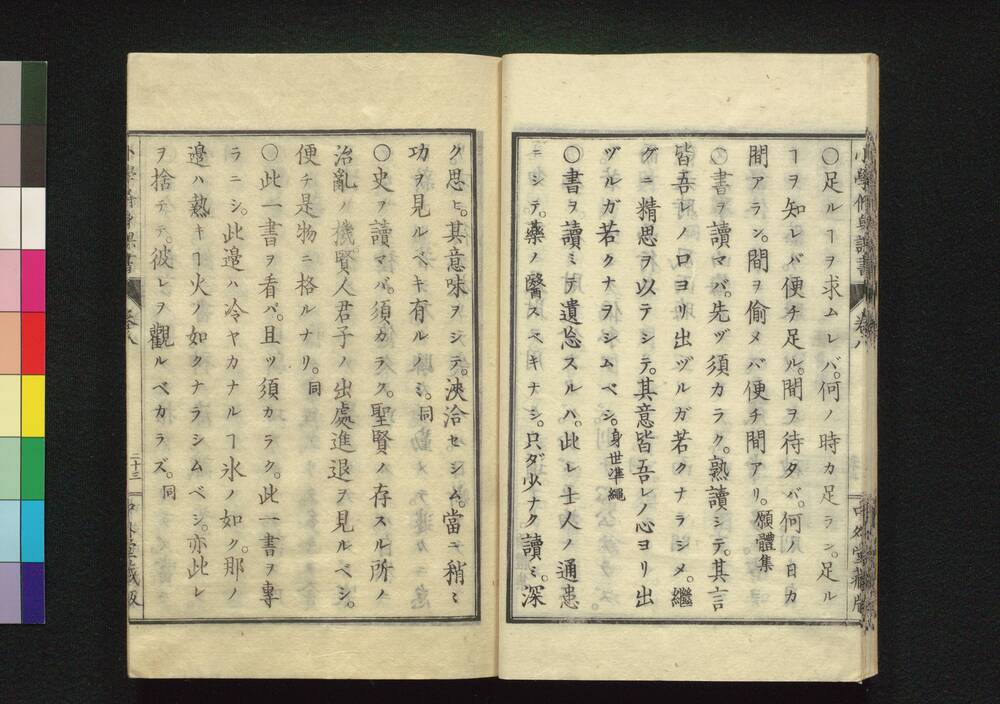 小學修身課書 卷八 中外堂藏版
〇足ルヿヲ求ムレバ。何ノ時カ足ラン。足ル
ヿヲ知レバ便チ足ル。間ヲ待タバ。何ノ日カ
間アラン。間ヲ偷メバ便チ間アリ。願體集
〇書ヲ讀マバ。先ヅ須カラク。熟讀シテ。其言
皆吾レノ口ヨリ出ヅルガ若クナラシメ。繼
グニ精思ヲ以テシテ。其意皆吾レノ心ヨリ出
ヅルガ若クナヲシムベシ。身世準繩
〇書ヲ讀ミテ遺忘スルハ。此レ士人ノ通患
ニシテ。藥ノ醫スベキナシ。只ダ少ナク讀ミ。深
ク思ヒ。其意味ヲシテ。浹洽セシム。當ニ稍ミ
功ヲ見ルベキ有ルノミ。同
〇史ヲ讀マバ。須カラク。聖賢ノ存スル所ノ
治亂ノ機。賢人君子ノ出處進退ヲ見ルベシ。
便チ是物ニ格ルナリ。同
〇此一書ヲ看バ。且ツ須カラク。此一書ヲ專
ラニシ。此邉ハ冷ヤカナルヿ氷ノ如ク。那ノ
邉ハ熱キヿ火ノ如クナラシムベシ。亦此レ
ヲ捨テテ。彼レヲ觀ルベカラズ。同
小學修身課書 卷八 二十三 中外堂藏版